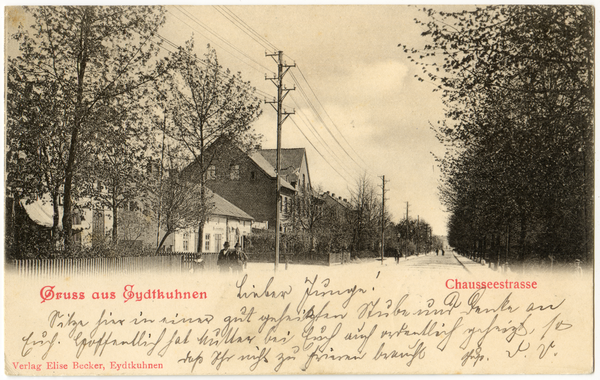 Gruss aus Eydtkuhnen
Chausseestrasse
Lieber Junge!
Sitze hier in einer gut geheizten Stube und denke an
Euch. Hoffentlich hat Mutter bei Euch auch ordentlich geheizt, so
daß Ihr nicht zu frieren braucht
Verlag Elise Becker, Eydtkuhnen